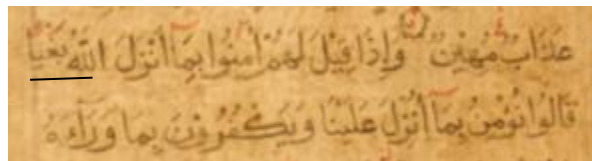 عَذَابٌ مُهِينٌ وَإِذَا قِيلَ لَهُمْ اٰمِنُوا بِمَآ أَنْزَلَ اللّٰهُ بَغْيًا
قَالُوا نُؤْمِنُ بِمَآ أُنْزِلَ عَلَيْنَا وَيَكْفُرُونَ بِمَا وَرَآءَهُ